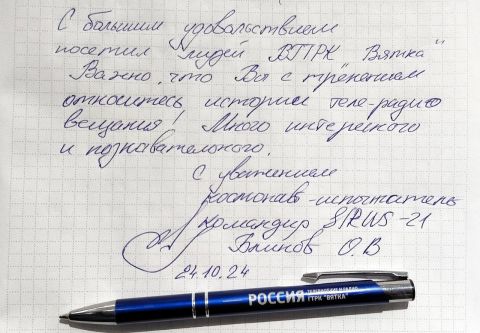 С большим удовольствием
посетил музей ВТРК "Вятка"
Важно, что Вы с трепетом
относитесь истории теле-радио
вещания! Много интересного
и познавательного.
С уважением
космонавт-испытатель
командир SIRIUS-21
Блинов О.В
24.10.24
РОССИЯ ТЕЛЕВИДЕНИЕ И РАДИО
ГТРК "ВЯТКА"